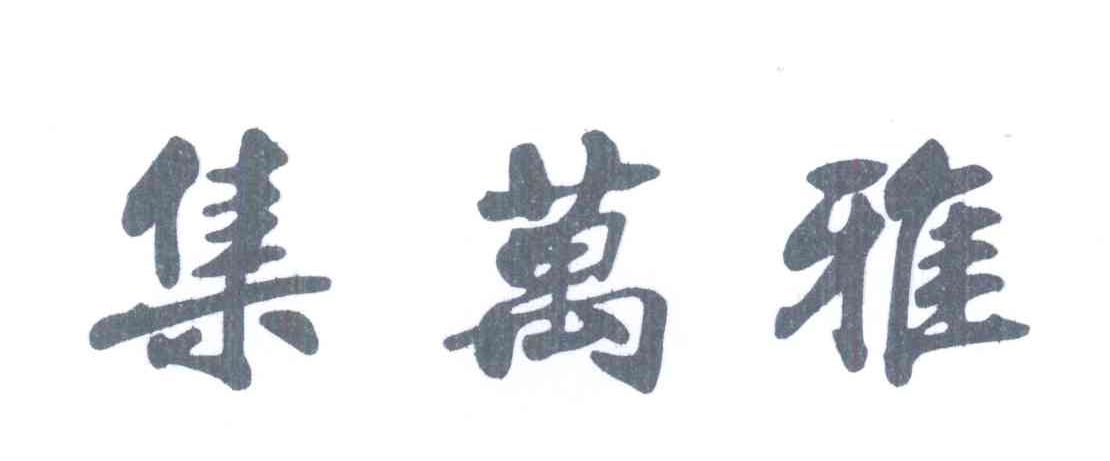 集萬雅